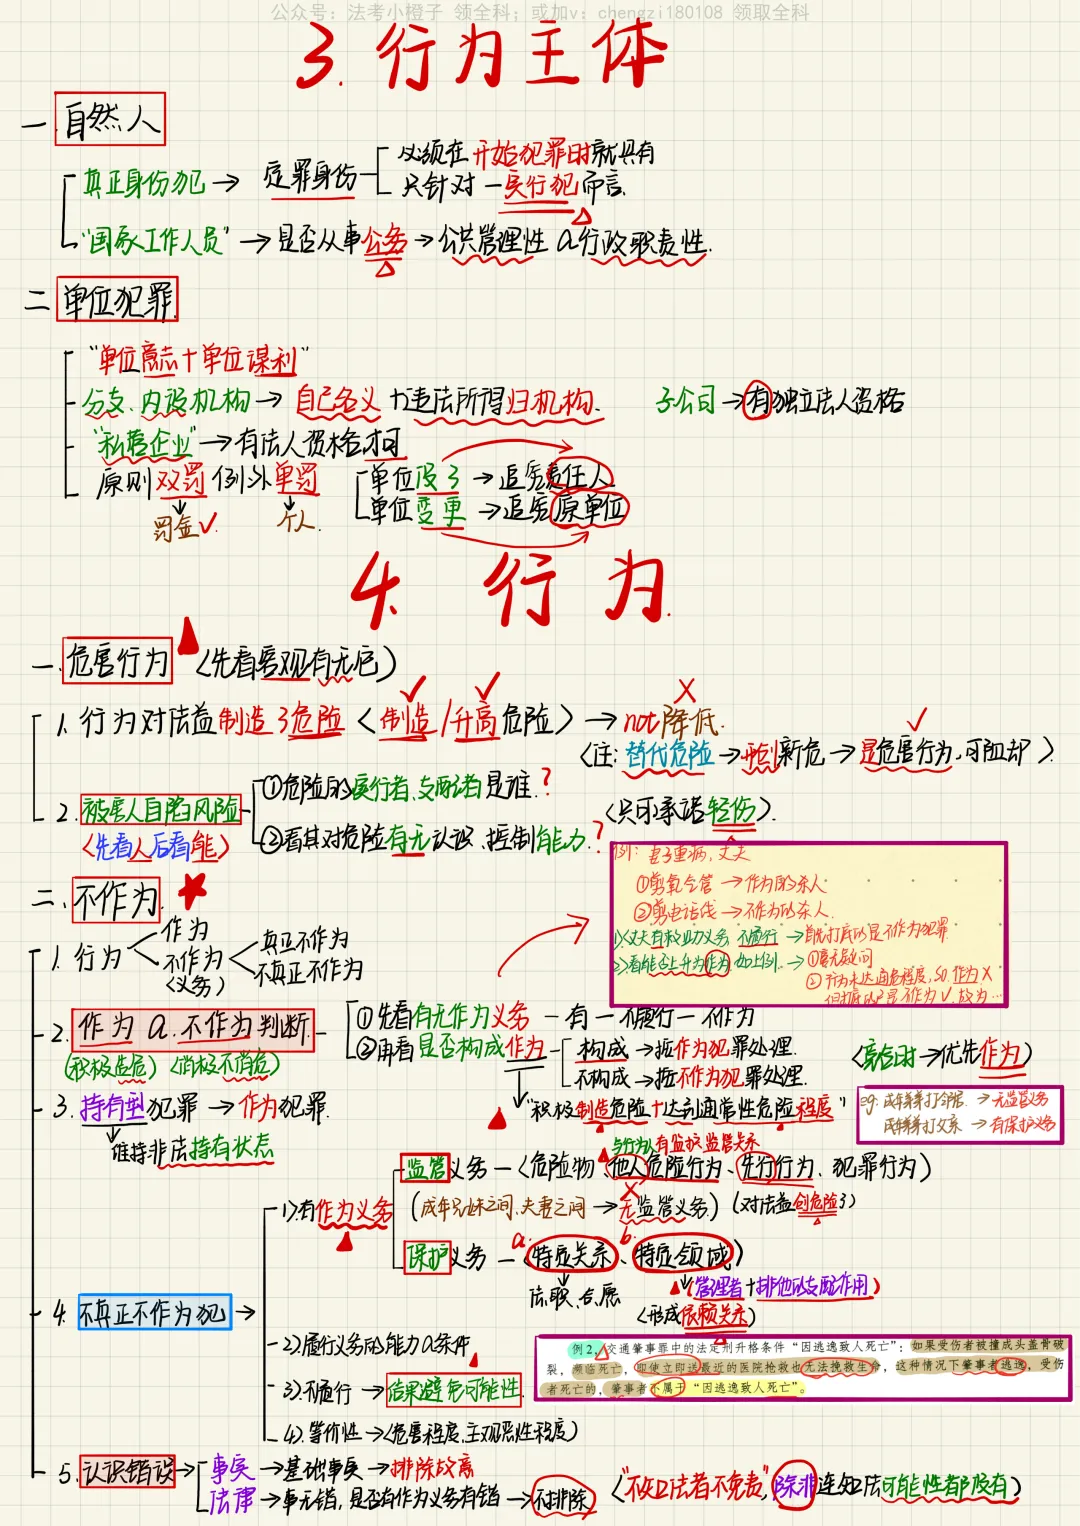 公众号：法考小橙子 领全科；或加v：chengzi180108 领取全科
3.行为主体
一.自然人
真正身份犯→定罪身份
必须在开始犯罪时就具有
只针对一实行犯而言.
"国家工作人员"→是否从事公务→公共管理性 a行政职责性.
二 单位犯罪
"单位意志+单位谋利"
分支、内设机构→自己名义+违法所得归机构.
子公司→有独立法人资格
"私营企业"→有法人资格才可
原则双罚 例外单罚
罚金✓. 个人.
单位没了→追究责任人
单位变更→追究原单位
4. 行为.
一.危害行为 〈先看客观有无危〉
1.行为对法益制造了危险〈制造/升高危险〉→not降低.
〈注:替代危险→开创新危→是危害行为,可阻却〉.
2.被害人自陷风险
〈先看人后看能〉
①危险的实行者、支配者是谁.?
②看其对危险有无认识、控制能力.?
〈只可承诺轻伤〉.
例: 妻子重病,丈夫
①剪氧气管→作为的杀人
②剪电话线→不作为的杀人.
1)丈夫有救助义务,不履行→首先打底的是不作为犯罪
2)看能否上升为作为.如上例.→①毫无疑问
②行为未达通危程度,so,作为×
但打底的是不作为✓.故为…
二.不作为.
1.行为
作为
不作为
〈义务〉
真正不作为
不真正不作为
2.作为 a.不作为判断.
(积极造危) (消极不消危)
①先看有无作为义务 — 有 — 不履行 — 不作为
②再看是否构成作为
构成→按作为犯罪处理.
不构成→按不作为犯罪处理.
〈竞合时→优先作为〉
"积极制造危险+达到通常性危险程度"
3.持有型犯罪→作为犯罪.
维持非法持有状态
eg:成年弟打邻居.→无监管义务
成年弟打父亲→有保护义务
4.不真正不作为犯→
1).有作为义务
与行为人有监护、监管关系
监管义务—〈危险物、他人危险行为、先行行为、犯罪行为〉
(成年兄妹之间、夫妻之间→无监管义务) (对法益创危险了)
保护义务—〈a.特定关系、b.特定领域〉
法、职、合、愿
〈管理者+排他的支配作用〉
〈形成依赖关系〉
2)履行义务的能力a条件
3).不履行→结果避免可能性.
4).等价性→〈危害程度、主观恶性程度〉
例 2，交通肇事罪中的法定刑升格条件“因逃逸致人死亡”：如果受伤者被撞成头盖骨破
裂，濒临死亡，即使立即送最近的医院抢救也无法挽救生命，这种情况下肇事者逃逸，受伤
者死亡的，肇事者不属于“因逃逸致人死亡”。
5.认识错误
事实→基础事实→排除故意
法律→事无错,是否有作为义务有错→不排除
〈"不知法者不免责",除非连知法可能性都没有〉